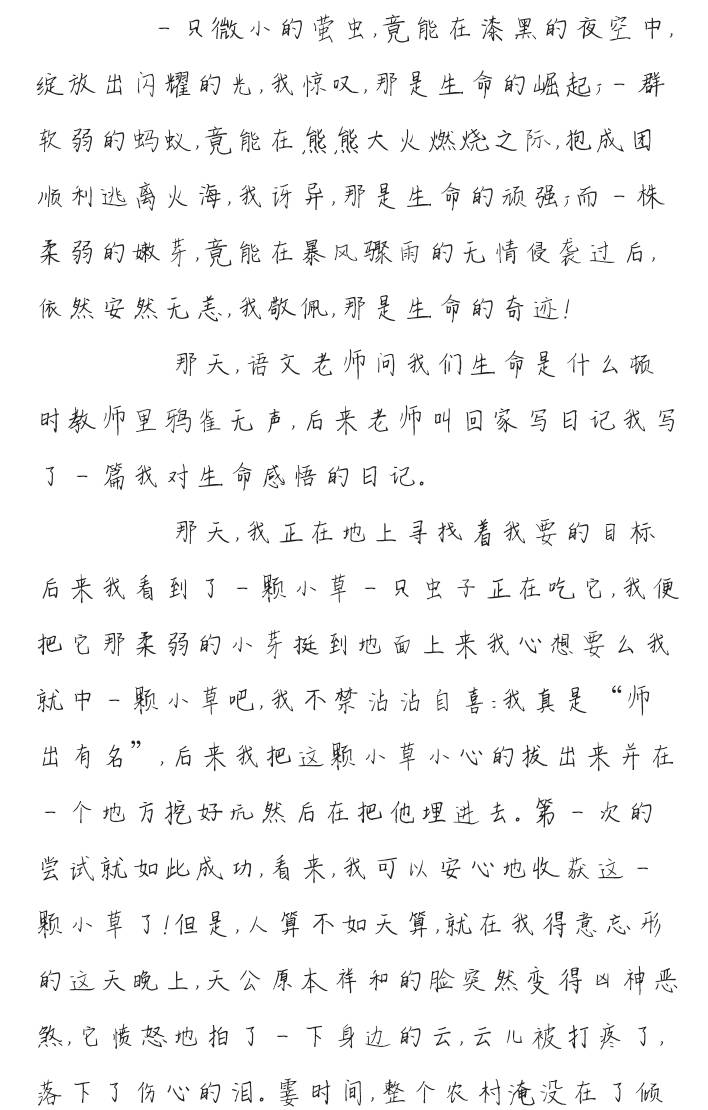 一只微小的萤虫,竟能在漆黑的夜空中,
绽放出闪耀的光,我惊叹,那是生命的崛起;一群
软弱的蚂蚁,竟能在熊熊大火燃烧之际,抱成团
顺利逃离火海,我讶异,那是生命的顽强;而一株
柔弱的嫩芽,竟能在暴风骤雨的无情侵袭过后,
依然安然无恙,我敬佩,那是生命的奇迹!
那天,语文老师问我们生命是什么顿
时教师里鸦雀无声,后来老师叫回家写日记我写
了一篇我对生命感悟的日记。
那天,我正在地上寻找着我要的目标
后来我看到了一颗小草一只虫子正在吃它,我便
把它那柔弱的小芽挺到地面上来我心想要么我
就中一颗小草吧,我不禁沾沾自喜:我真是“师
出有名”,后来我把这颗小草小心的拔出来并在
一个地方挖好坑然后在把他埋进去。第一次的
尝试就如此成功,看来,我可以安心地收获这一
颗小草了!但是,人算不如天算,就在我得意忘形
的这天晚上,天公原本祥和的脸突然变得凶神恶
煞,它愤怒地拍了一下身边的云,云儿被打疼了,
落下了伤心的泪。霎时间,整个农村淹没在了倾